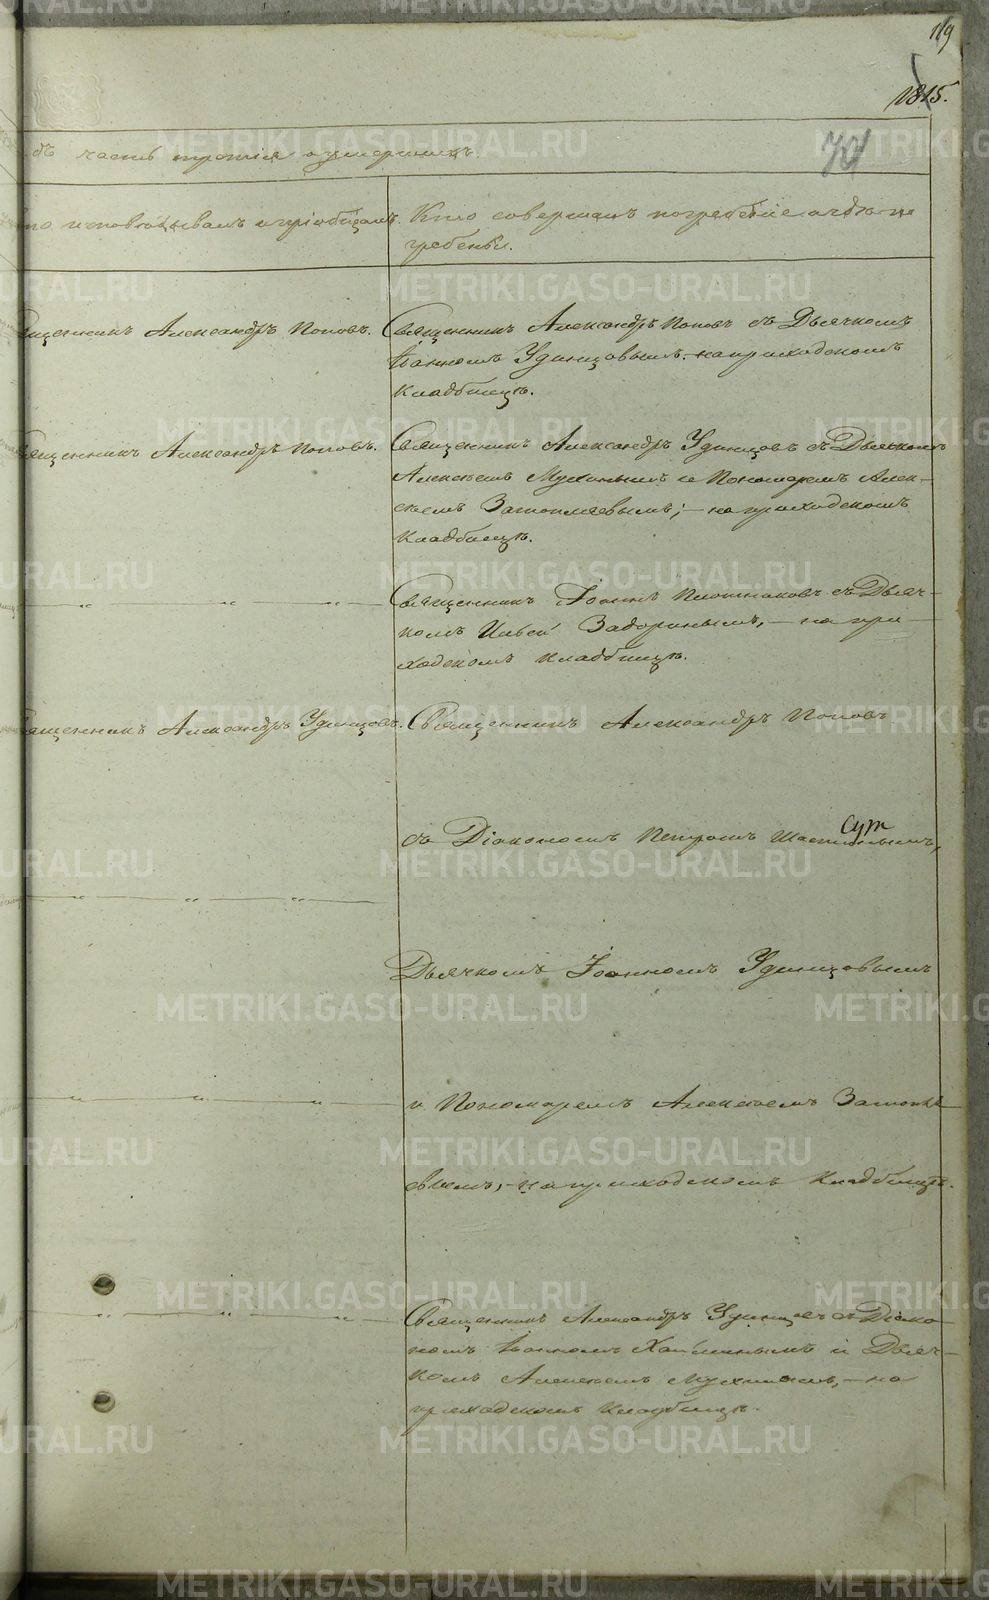 119
1815.
70
дѣ часть третія о умершихъ.
то исповѣдывалъ и пріобщалъ.
Кто совершалъ погребеніе и гдѣ по-
гребены.
щенникъ Александръ Поповъ.
Священникъ Александръ Поповъ съ Дьячкомъ
Іоанномъ Удинцовымъ. на приходскомъ
кладбищѣ.
вященникъ Александръ Поповъ.
Священникъ Александръ Удинцовъ съ Дьячкомъ
Алексѣемъ Мухинымъ и Пономаремъ Алек-
сѣемъ Затопляевымъ; — на приходскомъ
кладбищѣ.
— „ — „ — „ —
Священникъ Іоаннъ Плотниковъ съ Дьяч-
комъ Ильей Задоринымъ, — на при-
ходскомъ кладбищѣ.
вященникъ Александръ Удинцовъ.
Священникъ Александръ Поповъ
съ Діакономъ Петромъ
Дьячкомъ Іоанномъ Удинцовымъ
— „ — „ — „ —
и Пономаремъ Алексѣемъ Затопля-
— „ — „ — „ —
евымъ, — на приходскомъ кладбищѣ.
— „ — „ — „ —
Священникъ Александръ Удинцовъ съ Діако-
номъ Іоанномъ и Дьяч-
комъ Алексѣемъ Мухинымъ, — на
приходскомъ кладбищѣ.
METRIKI.GASO-URAL.RU